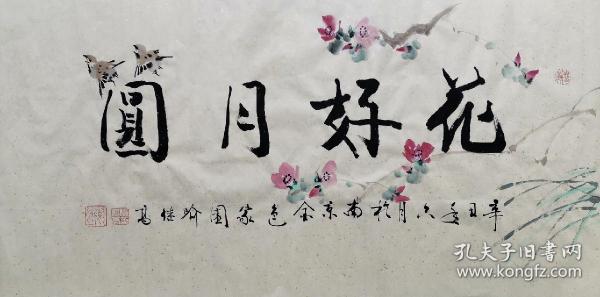 花好月圓
辛丑年六月於南京金色家園 高
孔夫子旧书网
www.kongfz.com